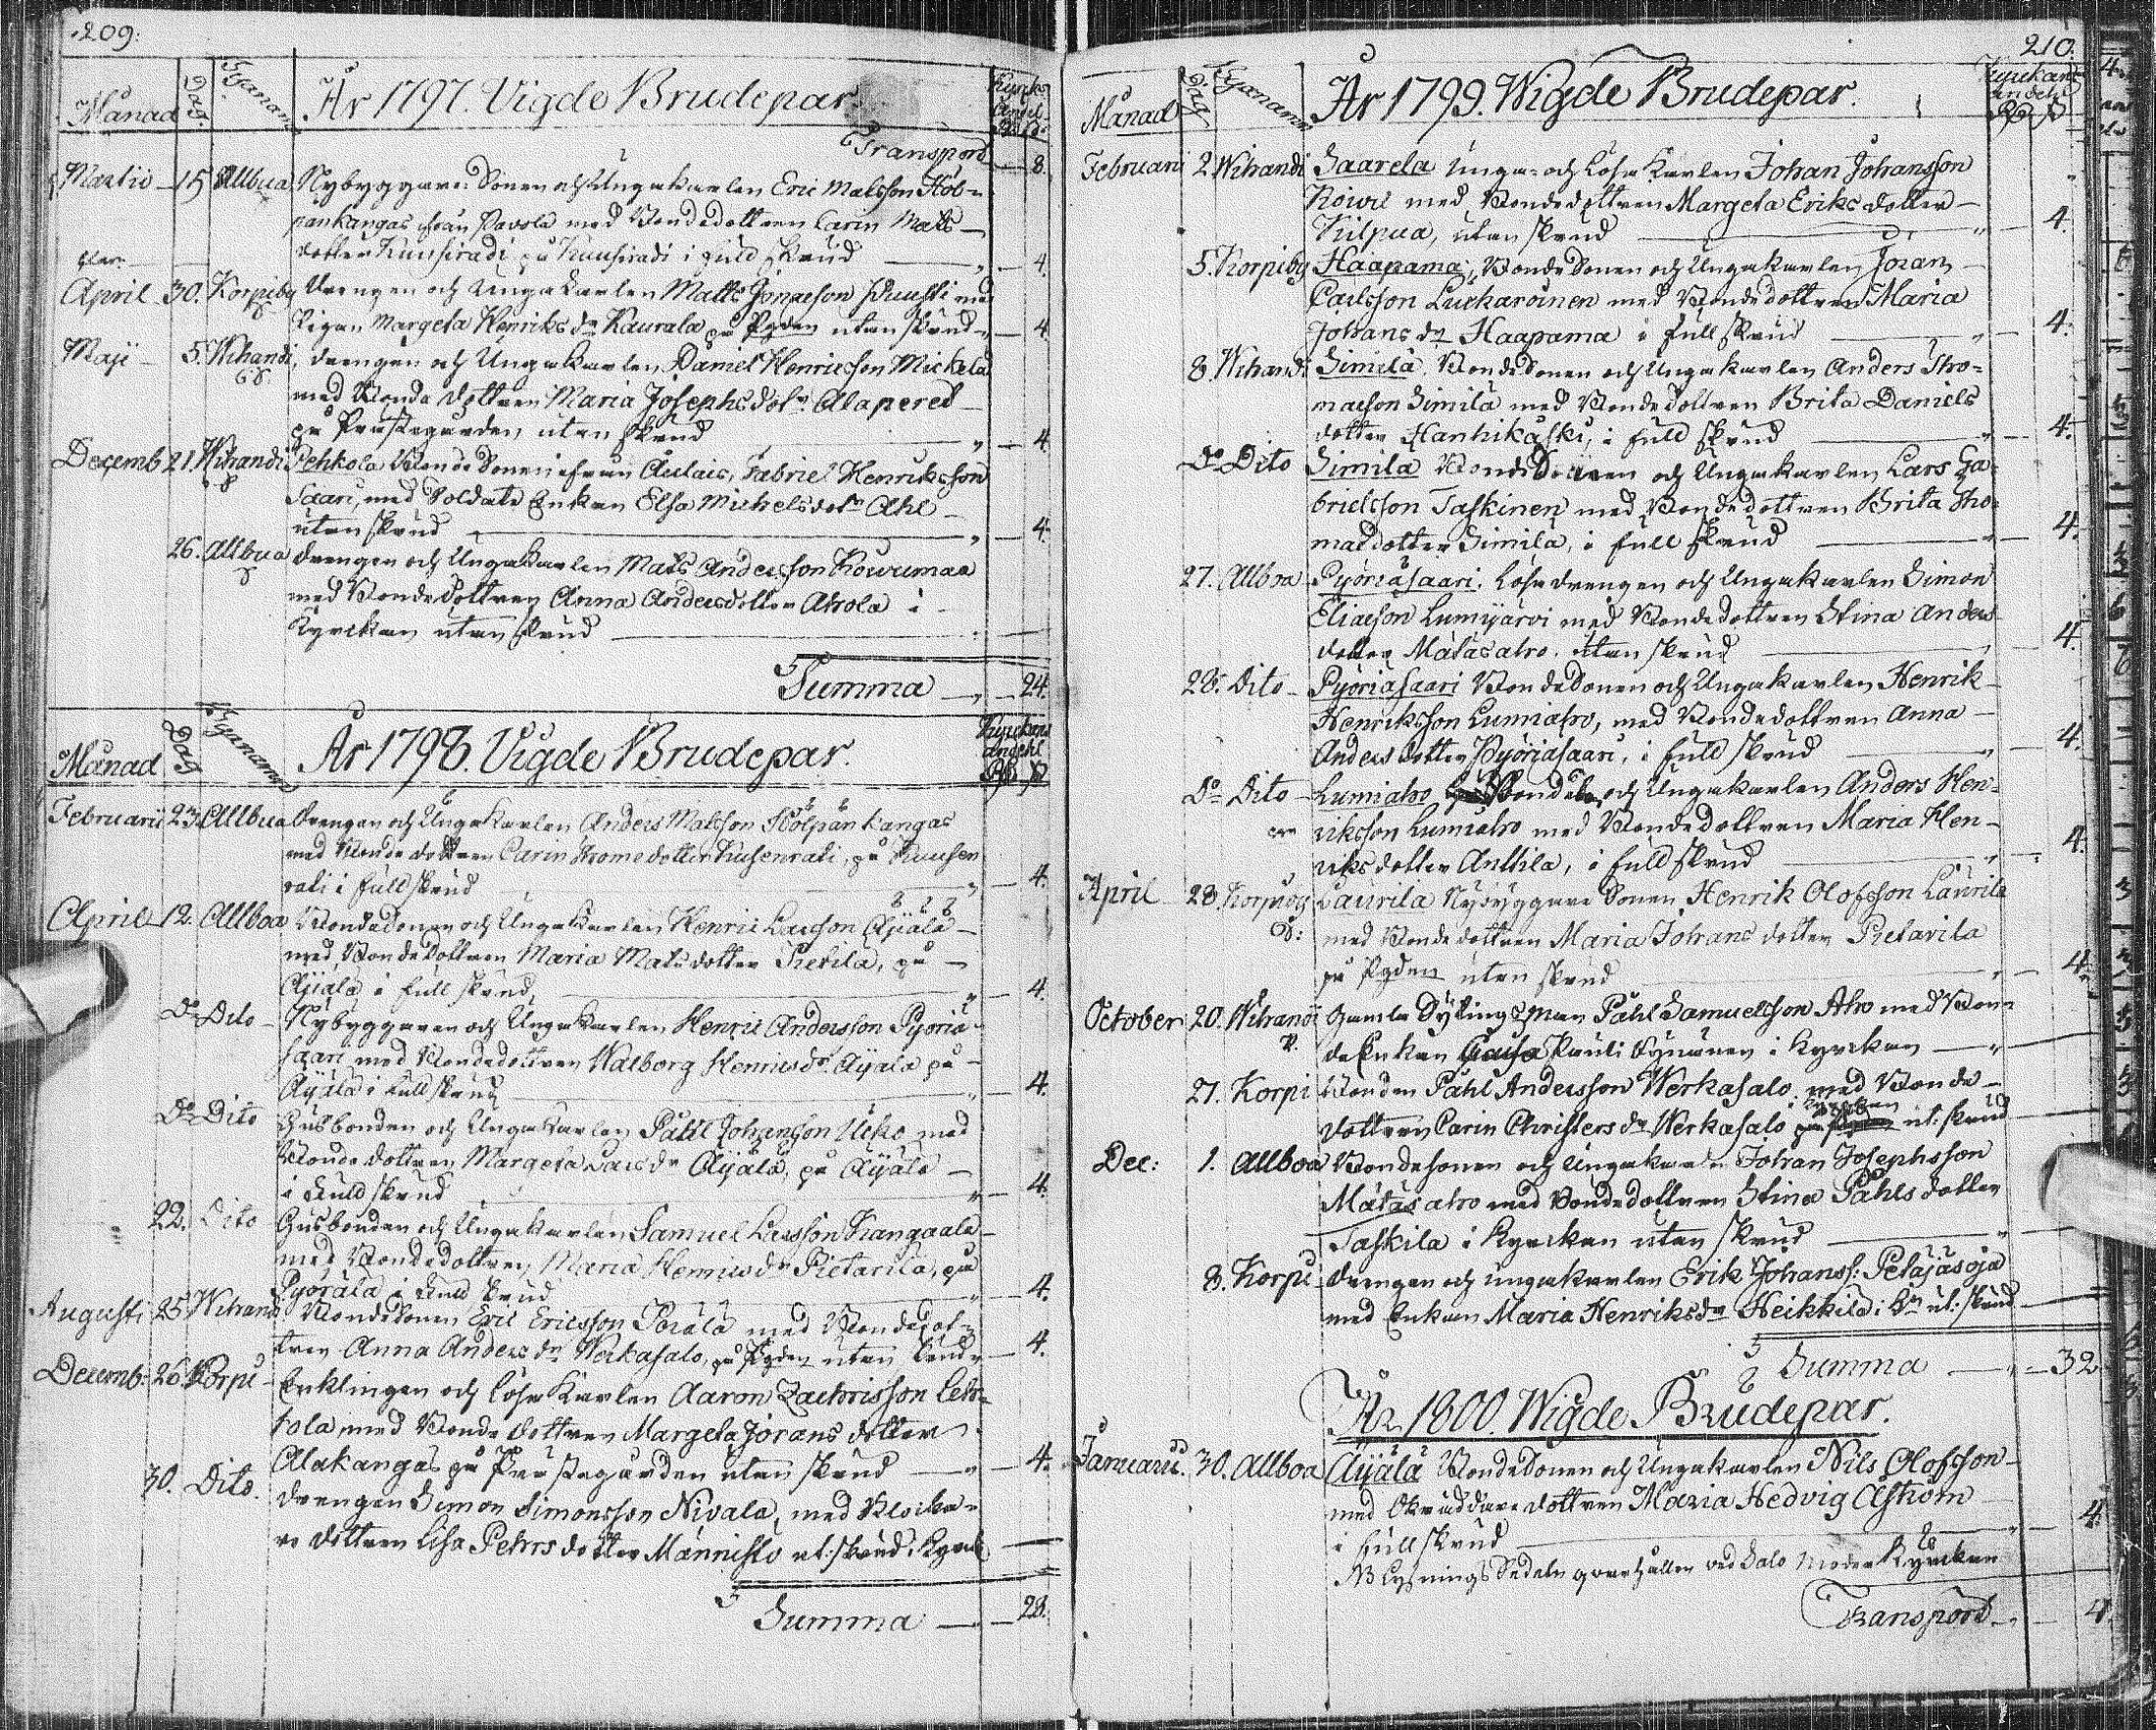 209:
Månad Dag. Bÿanamn År 1797. Vigde Brudepar.
Transport 8.
Martii 15 Allbua Nybyggare Sonen och Ungakarlen Eric Matsson Höl-
pänkangas från Pavola med Bondedottren Carin Mats
dotter Kuusiradi på Kuusiradi i full skrud 4.
April 30. Korpiby Drengen och Ungakarlen Matts Jonæson Ruusti med
Pigan Margeta Henriks dr Kaurala på Pgden utan skrud 4
Maji 5. Wihandi, Drengen och Ungakarlen Daniel Henricson Mickela
med Bonde dottren Maria Josephs dotr Alapered
på Prästegården utan skrud 4
Decemb 21. Wihandi Pehkola Bonde Sonen ifrån Aulais, Gabriel Henriksson
Saari, med Soldate Enkan Elsa Michels dotr Ahl
utan skrud 4.
26. Allbua Drengen och Ungakarlen Mats Andersson Kowumaa
med Bondedottren Anna Andersdotter Ahola i
Kyrckan utan skrud
Summa 24.
Månad Dag Bÿanamn År 1798. Vigde Brudepar. Kyrckans andehl
Februarii 23. Allbua Drengen och Ungakarlen Anders Matsson Hölpänkangas
med Bonde dottren Carin Thomedotter Kusenrati, på Kuusen
rati i full skrud 4.
April 12. Allboa Bondesonen och Ungakarlen Henric Larsson Äÿälä
med Bonde Dottren Maria Mats dotter Pietila, på
Äÿälä i full skrud 4.
Do Dito Nybyggaren och Ungakarlen Henric Andersson Pyöriä
saari med Bondedottren Walborg Henricsdr Äÿälä på
Äÿälä i full skrud 4.
Do Dito Husbonden och Ungakarlen Påhl Johansson Ukko med
Bonde dottren Margeta Lars dr Äÿälä, på Äÿälä
i full skrud 4.
22. Dito Husbonden och Ungakarlen Samuel Larsson Kangaala
med Bondedottren Maria Henricsdr Pietarila, på
Pyörälä i full skrud 4.
Augusti 25 Wihand Bonde Sonen Eric Ericsson Pörälä med Bondedot-
tren Anna Anders dr Werkasalo, på Pgden utan skrud 4.
Decemb: 26. Korpi Enklingen och Löse Karlen Aaron Zachrisson Leh-
tola med Bonde dottren Margeta Jörans dotter
Alakangas på Prästegården utan skrud 4.
30. Dito. Drengen Simon Simonsson Nivala, med Klocka-
re dottren Lisa Pehrs dotter Männistö ut: skrud i Kyrck
Summa 28.
210.
Månad Dag Bÿanamn År 1799. Wigde Brudepar. Kyrckans andehl
Februarii 2 Wihandi Saarela Unga- och Löse Karlen Johan Johansson
Koivu med Bondedottren Margeta Eriks dotter
Kilpua, utan skrud 4.
5. Korpiby Haapama, Bonde Sonen och Ungakarlen Jöran
Carlsson Luckaroinen med Bondedottren Maria
Johans dr Haapama i full skrud 4.
8. Wihandi Similä. Bonde Sonen och Ungakarlen Anders Tho-
maeson Similä med Bondedottren Brita Daniels
dotter Hanhikaski, i full skrud 4.
Do Dito Similä Bonde Sonen och Ungakarlen Lars Ga-
brielsson Taskinen med Bondedottren Brita Tho-
mædotter Similä, i full skrud 4.
27. Allboa Pyöriäsaari. Löse drengen och Ungakarlen Simon
Eliaeson Lumijärvi med Bondedottren Stina Anders
dotter Mätäsaho. utan skrud 4.
28. Dito Pyöriäsaari Bonde Sonen och Ungakarlen Henrik
Henriksson Lumiaho, med Bondedottren Anna
Anders dotter Pyöriäsaari, i full skrud 4.
Do Dito Lumiaho Bonden och Ungakarlen Anders Hen-
riksson Lumiaho med Bondedottren Maria Hen-
riks dotter Anttila, i full skrud 4.
April 28. Korpiby Laurila Nybyggare Sonen Henrik Olofsson Laurila
med Bondedottren Maria Johans dotter Pietarila
på Pgden utan skrud 4.
October 20. Wihandi Gamla Sytningsman Påhl Samuelsson Aho med Bon-
de Enkan Caisa Pauli i Kyrckan
21. Korpi Bonden Påhl Andersson Werkasalo, med Bonde
dottren Carin Christers dr Werkasalo i Kyrckan ut: skrud
Dec: 1. Allboa Bondesonen och Ungakarln Johan Josephsson
Mätäs aho med Bondedottren Stina Påhls dotter
Taskila i Kyrckan utan skrud
8. Korpi Drengen och ungakarlen Erik Johanss: Petäjäsoja
med Enkan Maria Henriks dr Heikkilä i ut: skrud
Summa 32
År 1800. Wigde Brudepar.
Januarii. 30. Allboa Äÿälä Bonde Sonen och Ungakarlen Nils Olofsson
med Skräddare dottren Maria Hedvig Åström
i full skrud 4.
NB Lysnings Sedeln qvarhållen ved Salo Moder Kyrckan
Transport 4.